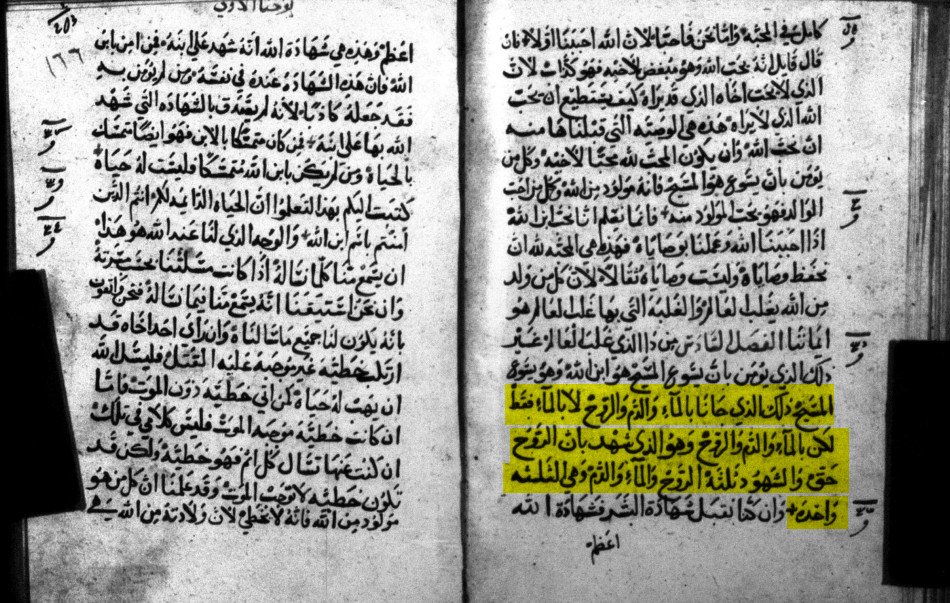 كامل في المحبه واما نحن فاحبنا لان الله احبنا اولا فان
قال قايل انه يحب الله وهو مبغض لاخيه فهو كذاب لان
الذي لا يحب اخاه الذي قد يراه كيف يستطيع ان يحب
الله الذي لا يراه هذه هي الوصيه التي قبلناها منه
ان نحب الله وان يكون المحب لله محبا لاخيه وكل من
يومن بان يسوع هو المسيح فانه مولود من الله وكل من احب
الوالد فهو يحب المولود منه فانما نعلم انا نحب ابن الله
اذا احببنا الله وعملنا بوصاياه فهذه هي المحبه لله ان
نحفظ وصاياه وليست وصاياه ثقالا لان كل من ولد
من الله يغلب العالم والغلبة التي بها غلب العالم هو
ايماننا الفصل السادس من ذا الذي غلب العالم غير
ذلك الذي يومن بان يسوع المسيح هو ابن الله وهو يسوع
المسيح ذلك الذي جانا بالمآء والدم والروح لا بالمآء فقط
لكن بالمآء والدم والروح وهو الذي شهد بان الروح
حق والشهود ثلثة الروح والمآء والدم وهي الثلثه
واحده وان كنا نقبل شهادة البشر فشهادة الله
اعظم
يوحنا الاولي
١٦٦
اعظم وهذه هي شهادة الله انه شهد علي ابنه فمن امن بابن
الله فان هذه الشهادة عنده في نفسه ومن لم يومن به
فقد جعله كاذبا لانه لم يصدق بالشهاده التي شهد
الله بها علي ابنه فمن كان متمسكا بالابن فهو ايضا متمسك
بالحياة ومن لم يكن بابن الله متمسكا فليست له حياة
كتبت اليكم بهذا لتعلموا ان الحياه الدايمه لكم انتم الذين
امنتم باسم ابن الله والوجه الذي لنا عند الله هو هذا
ان يسمع منا كلما نساله اذا كانت مسالتنا بحسب مسرته
وان نحن استيقنا انه يسمع منا فيما نساله فنحن واثقون
بانه يكون لنا جميع ما سالناه وان راى احد اخاه قد
ارتكب خطيه غير موجبه عليه القتل فليسل الله
ان يهب له حياة لمن اتي خطيه دون الموت فاما
ان كانت خطية موجبه الموت فليس كلامي في تلك
ان كنت عنها تسال كل اثم فهو خطيه ولكن قد
تكون خطيه لا توجب الموت وقد علمنا ان كل من هو
مولود من الله فانه لا يخطي لان ولادته من الله